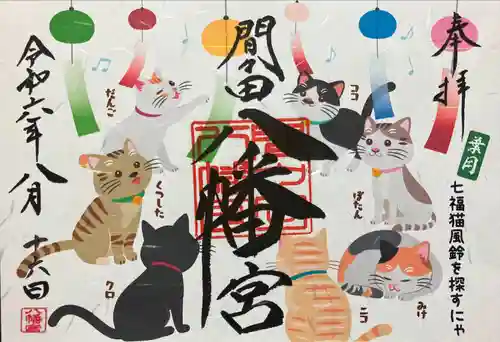 奉拝
葉月
七福猫風鈴を探すにゃ
間々田八幡宮
令和六年八月十六日
だんご
ココ
くつした
ぼたん
クロ
ニコ
みけ
八幡宮